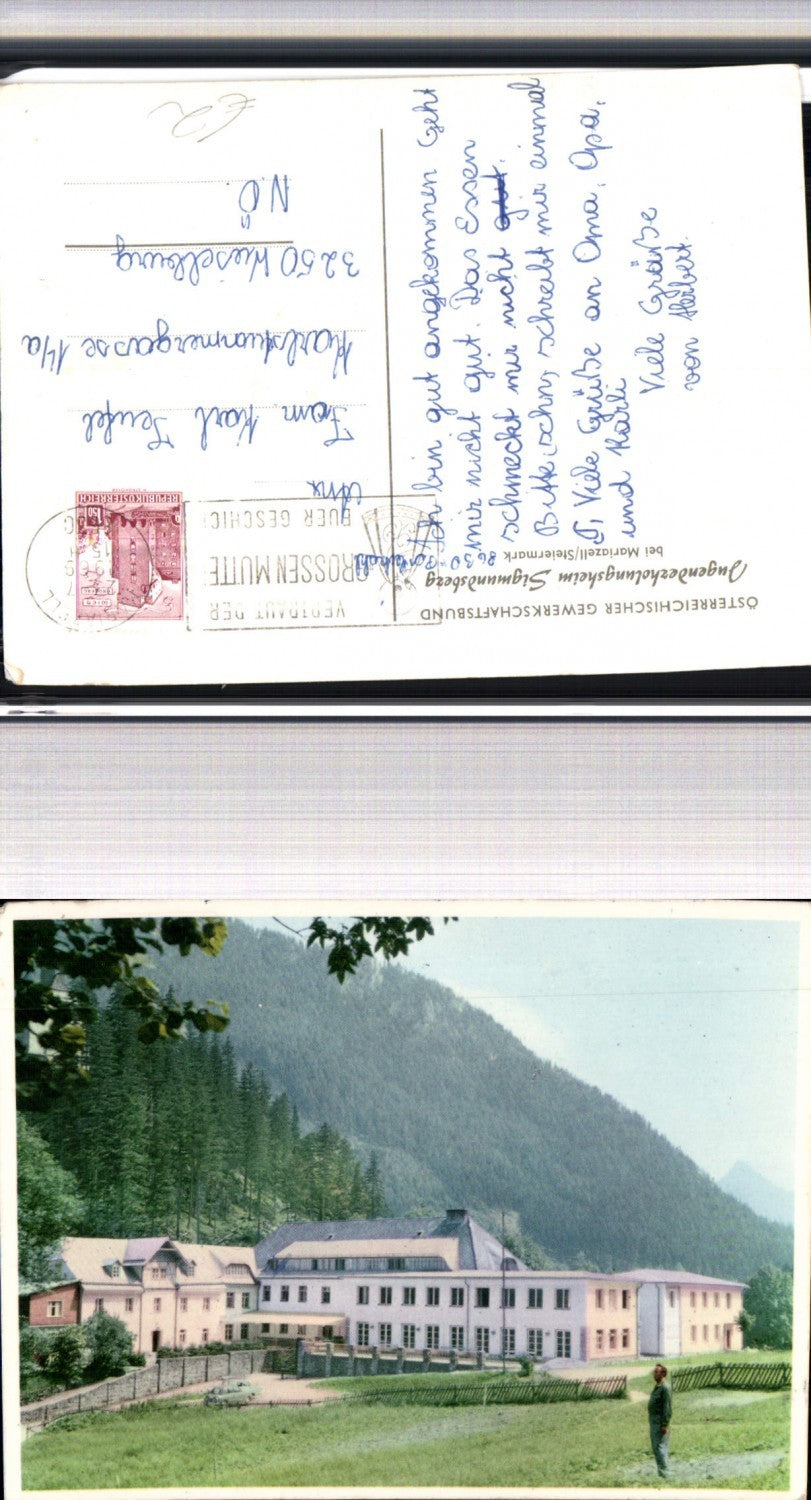 ÖSTERREICHISCHER GEWERKSCHAFTSBUND
Jugenderholungsheim Sigmundsberg
bei Mariazell/Steiermark
8630
Ich bin gut angekommen Geht
mir nicht gut. Das Essen
schmeckt mir nicht gut.
Bitte schn, schreibt mir einmal
Viele Grüße an Oma, Opa,
und Karli
Viele Grüße
von Herbert.
VERTRAUT DER
GROSSEN MUTTE
EUER GESCHIC
REPUBLIK ÖSTERREICH
1.50
An
Fam. Karl Teufel
14a
3250 Wieselburg
N.Ö
€2